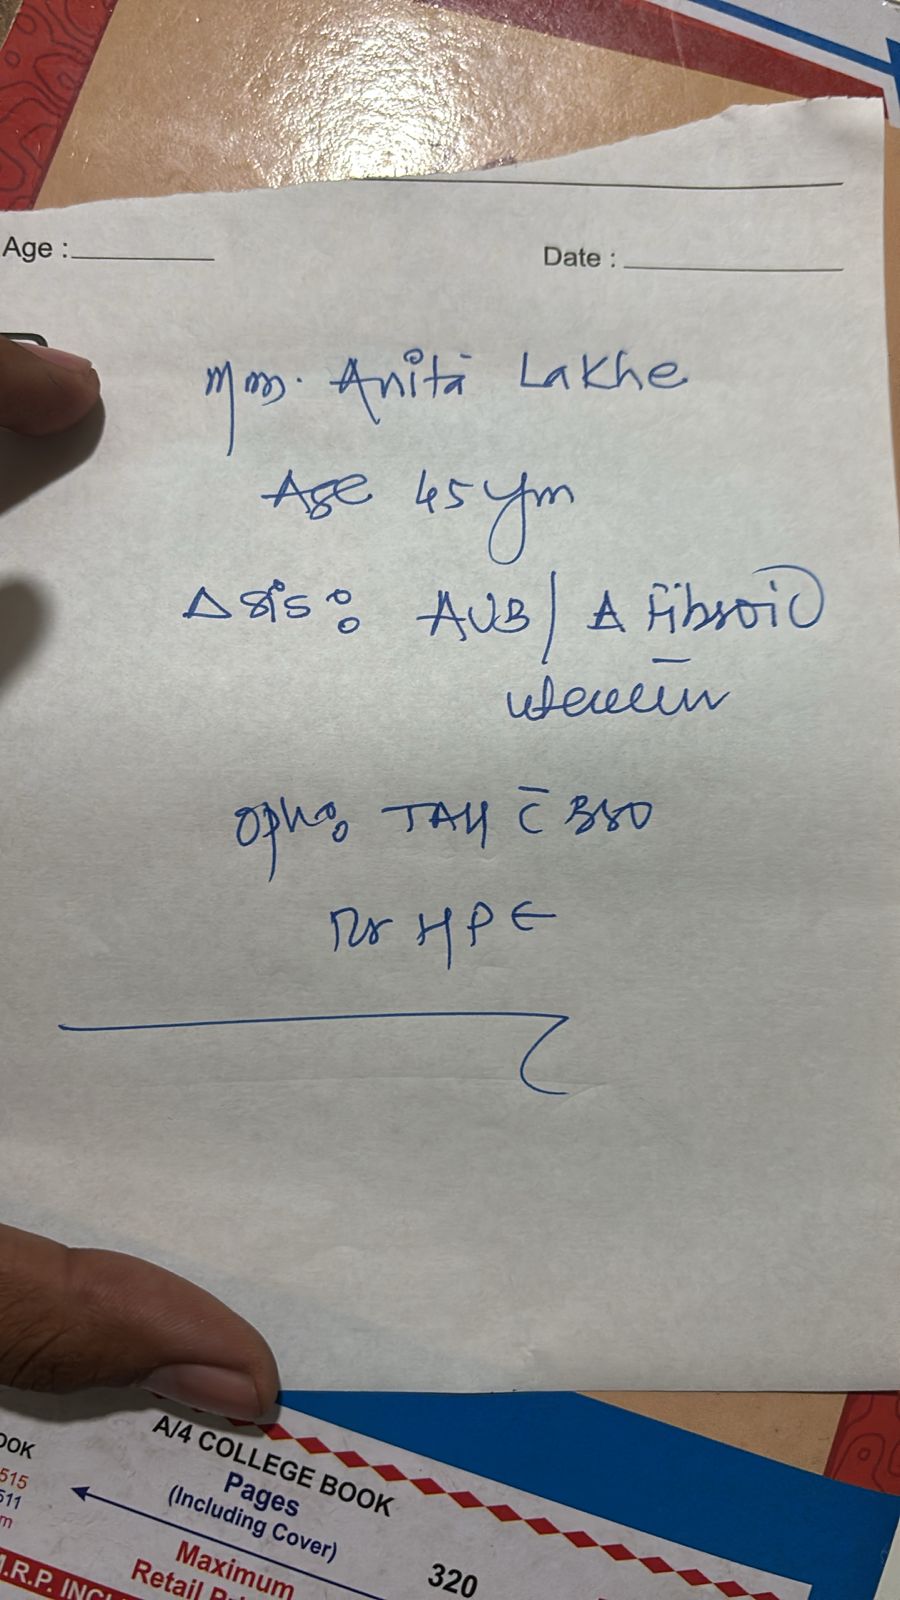 Age :
Date :
Mrs. Anita Lakhe
Age 45 yrs
Δsis: AUB / A Fibroid
uterus
Opn: TAH c̄ BSO
for HPE
A/4 COLLEGE BOOK
Pages
(Including Cover)
320
Maximum
Retail
OOK
515
511
m
M.R.P. INCL